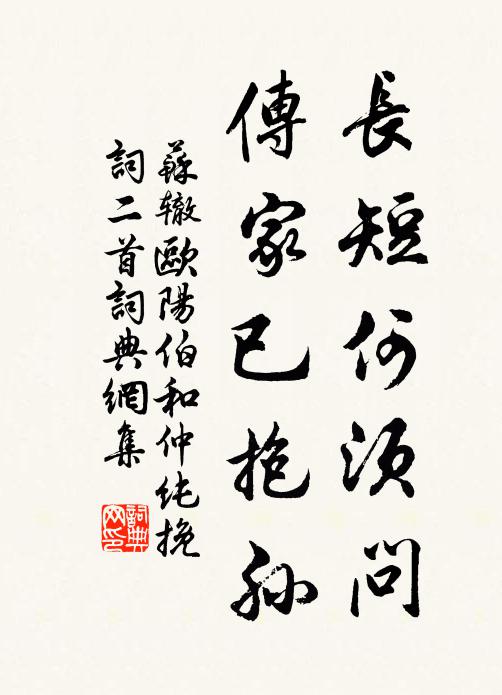 長短何須問
傳家已抱孫
蘇辙歐陽伯和仲纯挽
詞二首詞典網集
詞典
网印